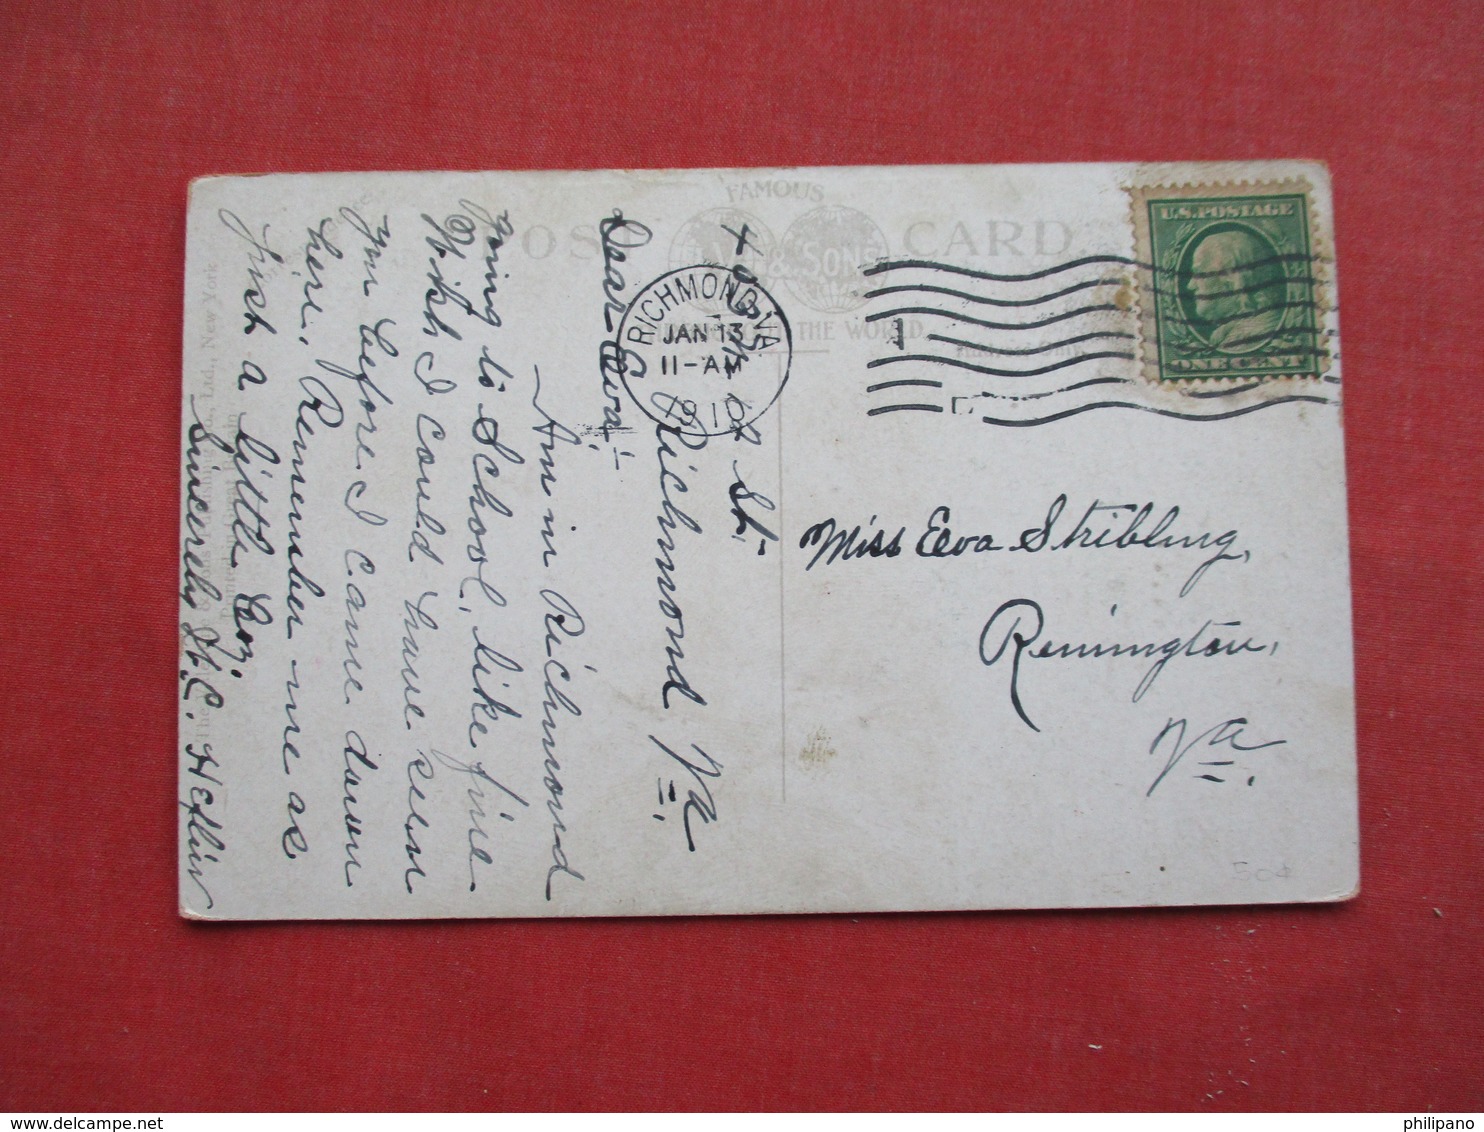 FAMOUS
POST CARD
& SONS
THE WORLD
RICHMOND, VA
JAN 13
11-AM
1910
U.S. POSTAGE
ONE CENT
St.
Richmond Va.
Dear Eva:-
Am in Richmond
going to School, like fine
Wish I could have seen
you before I came down
here. Remember me as
Just a little Coz.
Sincerely H.C. Heflin
Miss Eeva Stribling,
Remington,
Va.
50¢
philipano
www.delcampe.net